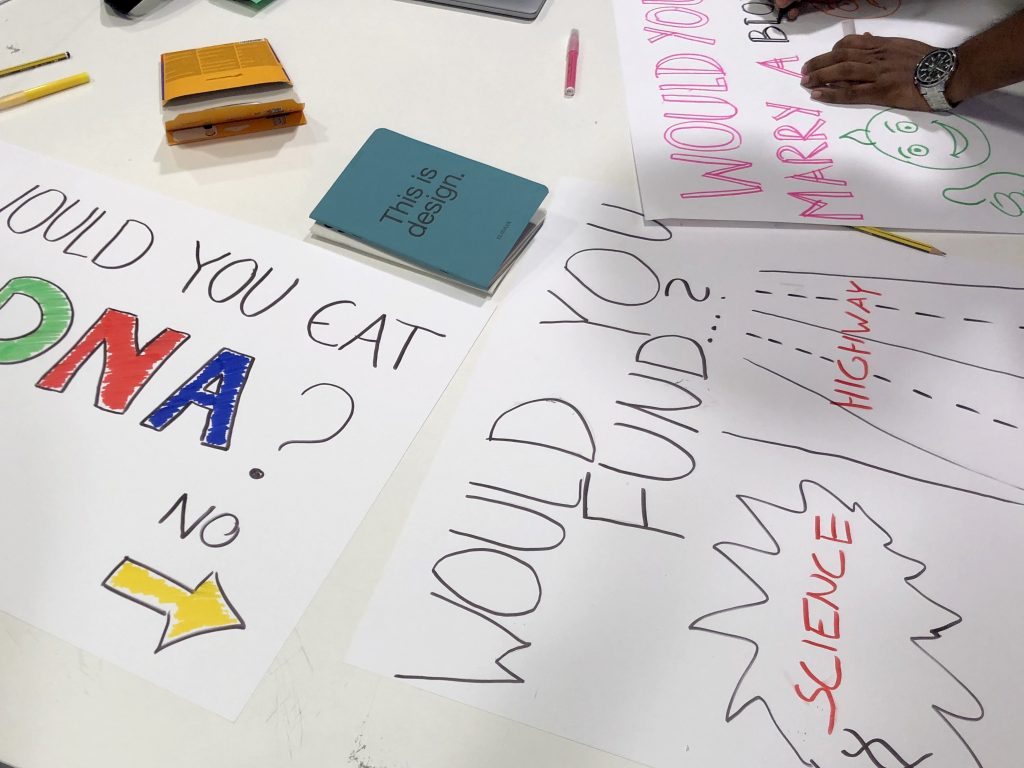 WOULD YOU EAT
DNA
?
NO
This is
design.
WOULD YOU
FUND...?
HIGHWAY
SCIENCE
WOULD YOU
MARRY A